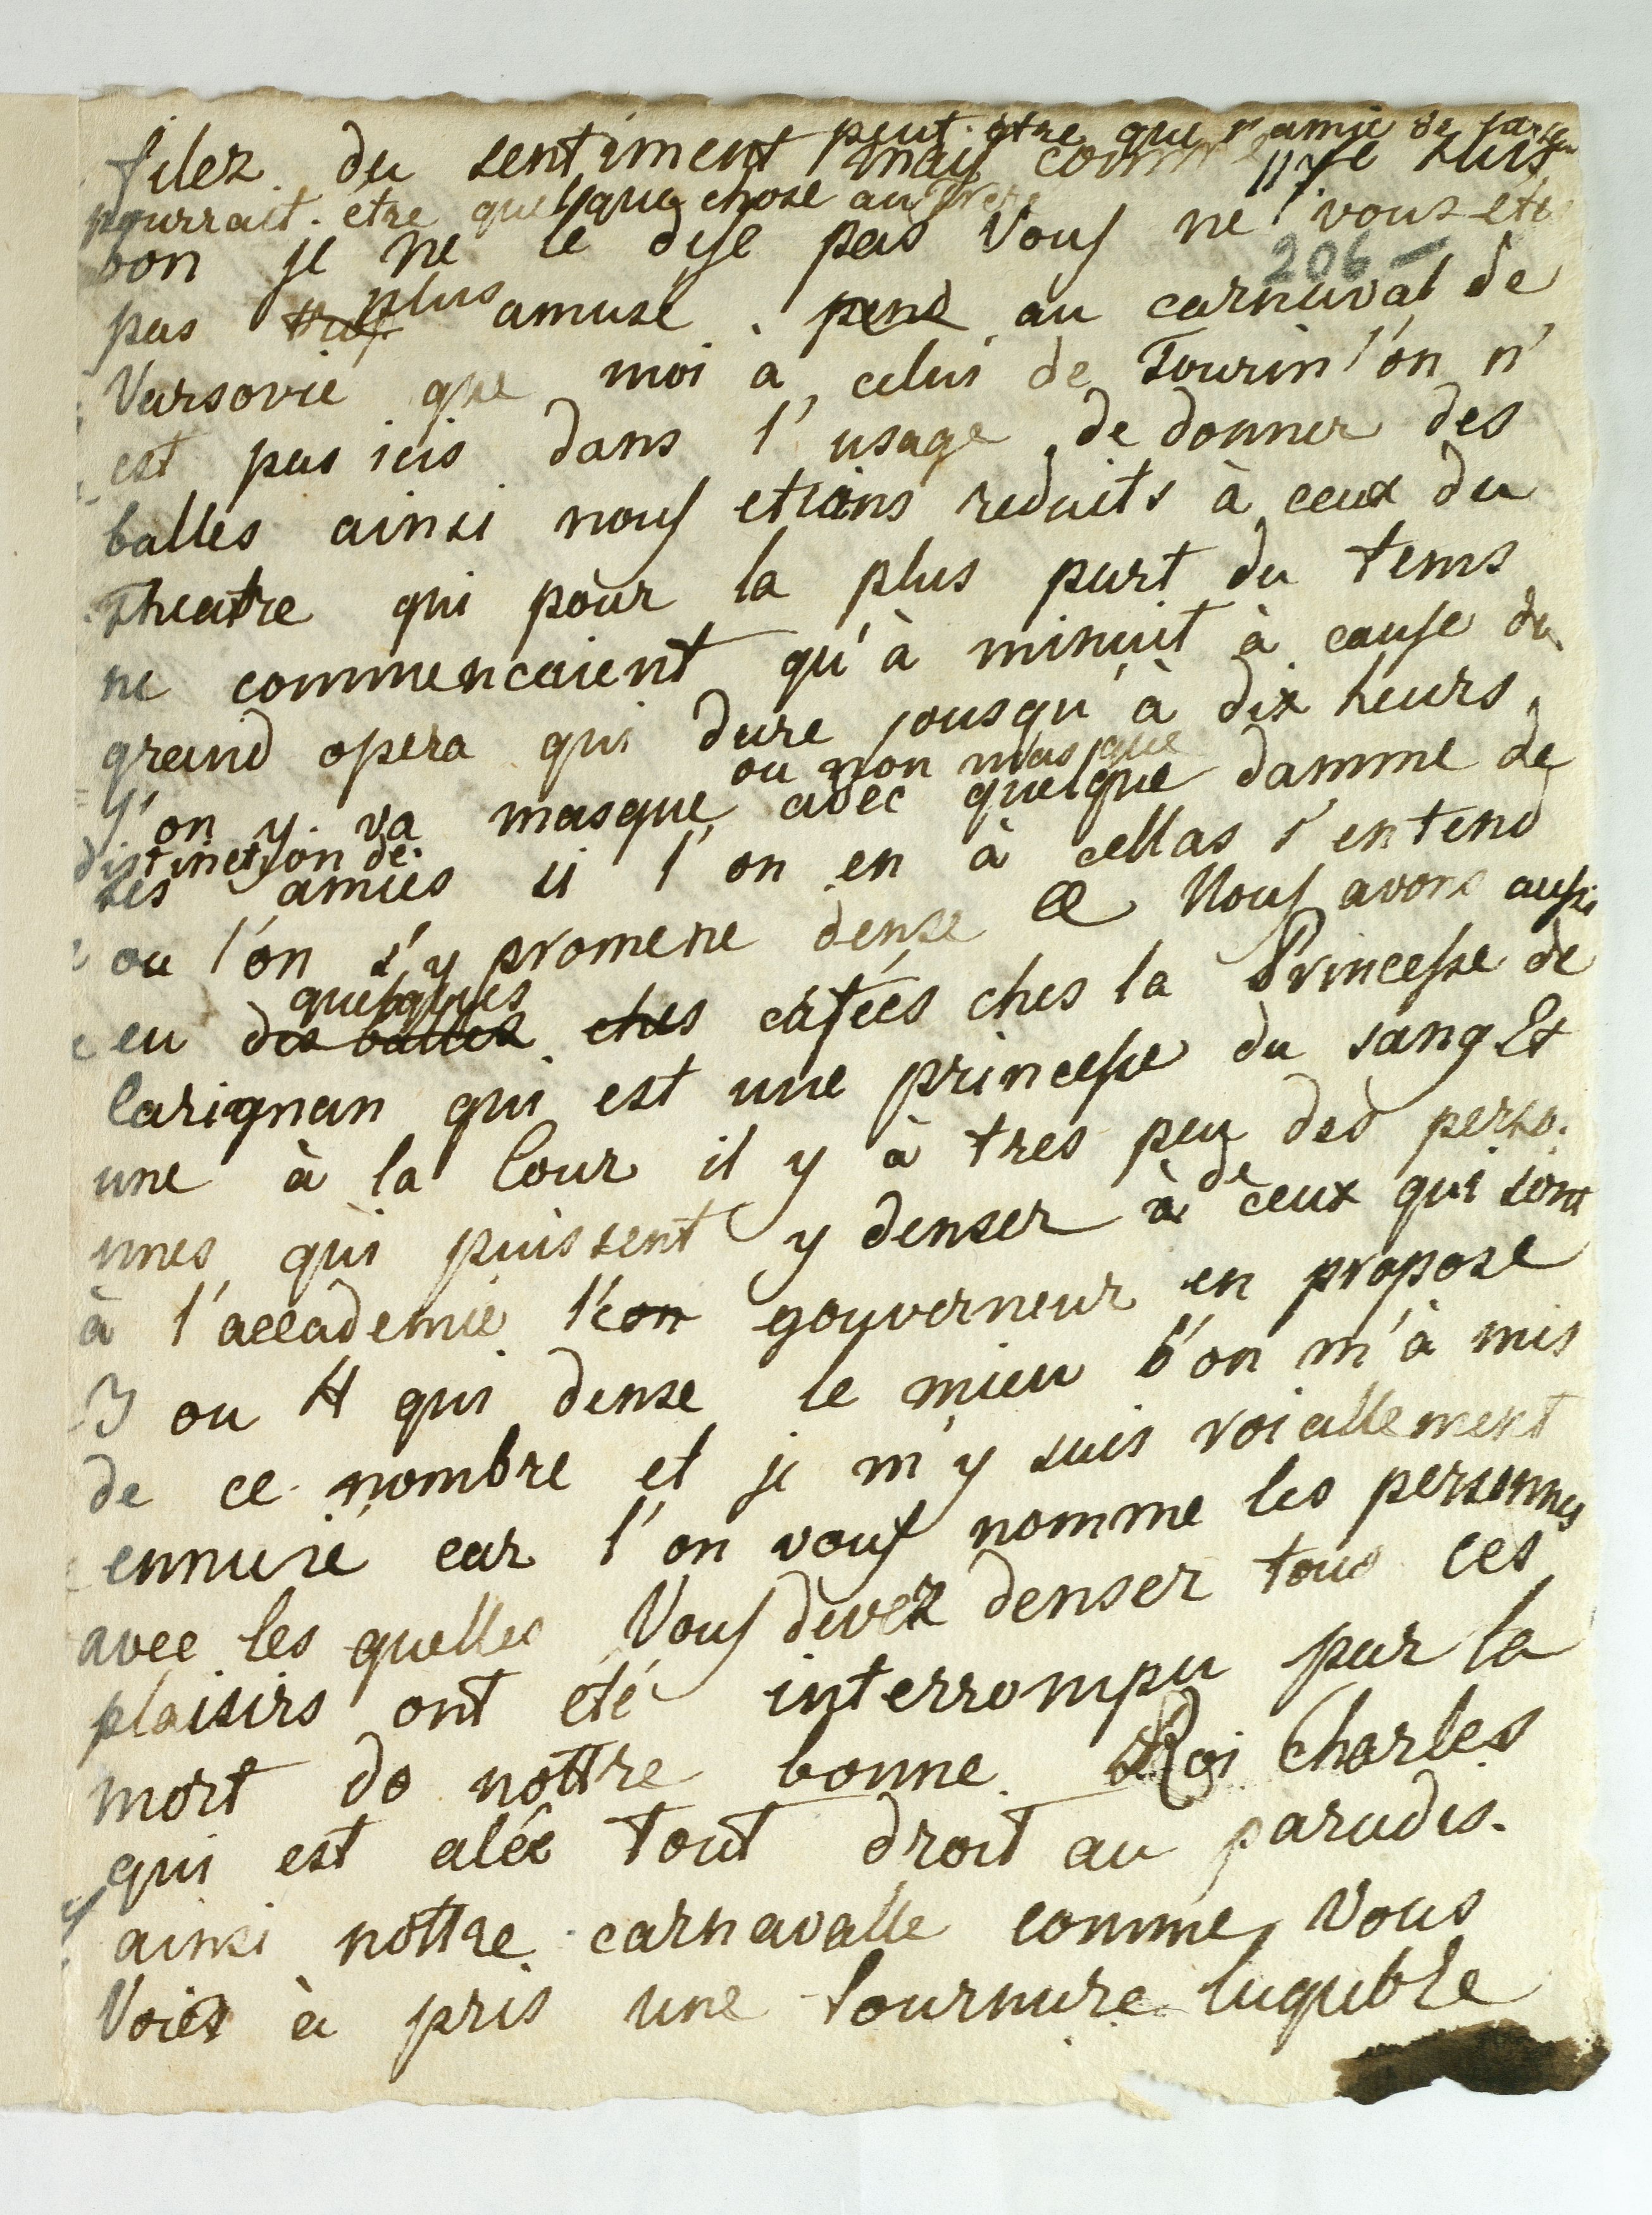 filez du sentiment peut-etre que l'amie de
mais comme je suis
pourrait-etre quelque chose au
bon je ne le dise pas Vous ne vous ete
206 —
pas plus amuse pend au carnaval de
Varsovie que moi a celui de Tourin l'on n'
est pas icis dans l'usage de donner des
balles ainsi nous etions reduits à ceux du
Theatre qui pour la plus part du tems
ne commencaient qu'à minuit à cause du
grand opera qui dure jousqu'à dix heurs
ou non masque
l'on y va masque avec quelque damme de
distinction de
ses amies si l'on en à cellas s'entend
ou l'on s'y promene dense & Nous avons aussi
quelques
eu des balles ches ches la Princesse de
Carignan qui est une princesse du sang Et
une à la Cour il y à tres peu des perso-
nnes qui puissent y denser à de ceux qui sont
à l'accademie l'on gouverneur en propose
3 ou 4 qui dense le mieu l'on m'à mis
de ce nombre et je m'y suis roiallement
ennuié car l'on vous nomme les personnes
avec les quelles Vous devez denser tous ces
plaisirs ont eté interrompu par la
mort do nottre bonne Roi Charles
qui est alée tout droit au paradis.
ainsi nottre carnavalle comme Vous
Voies à pris une tournure lugubre